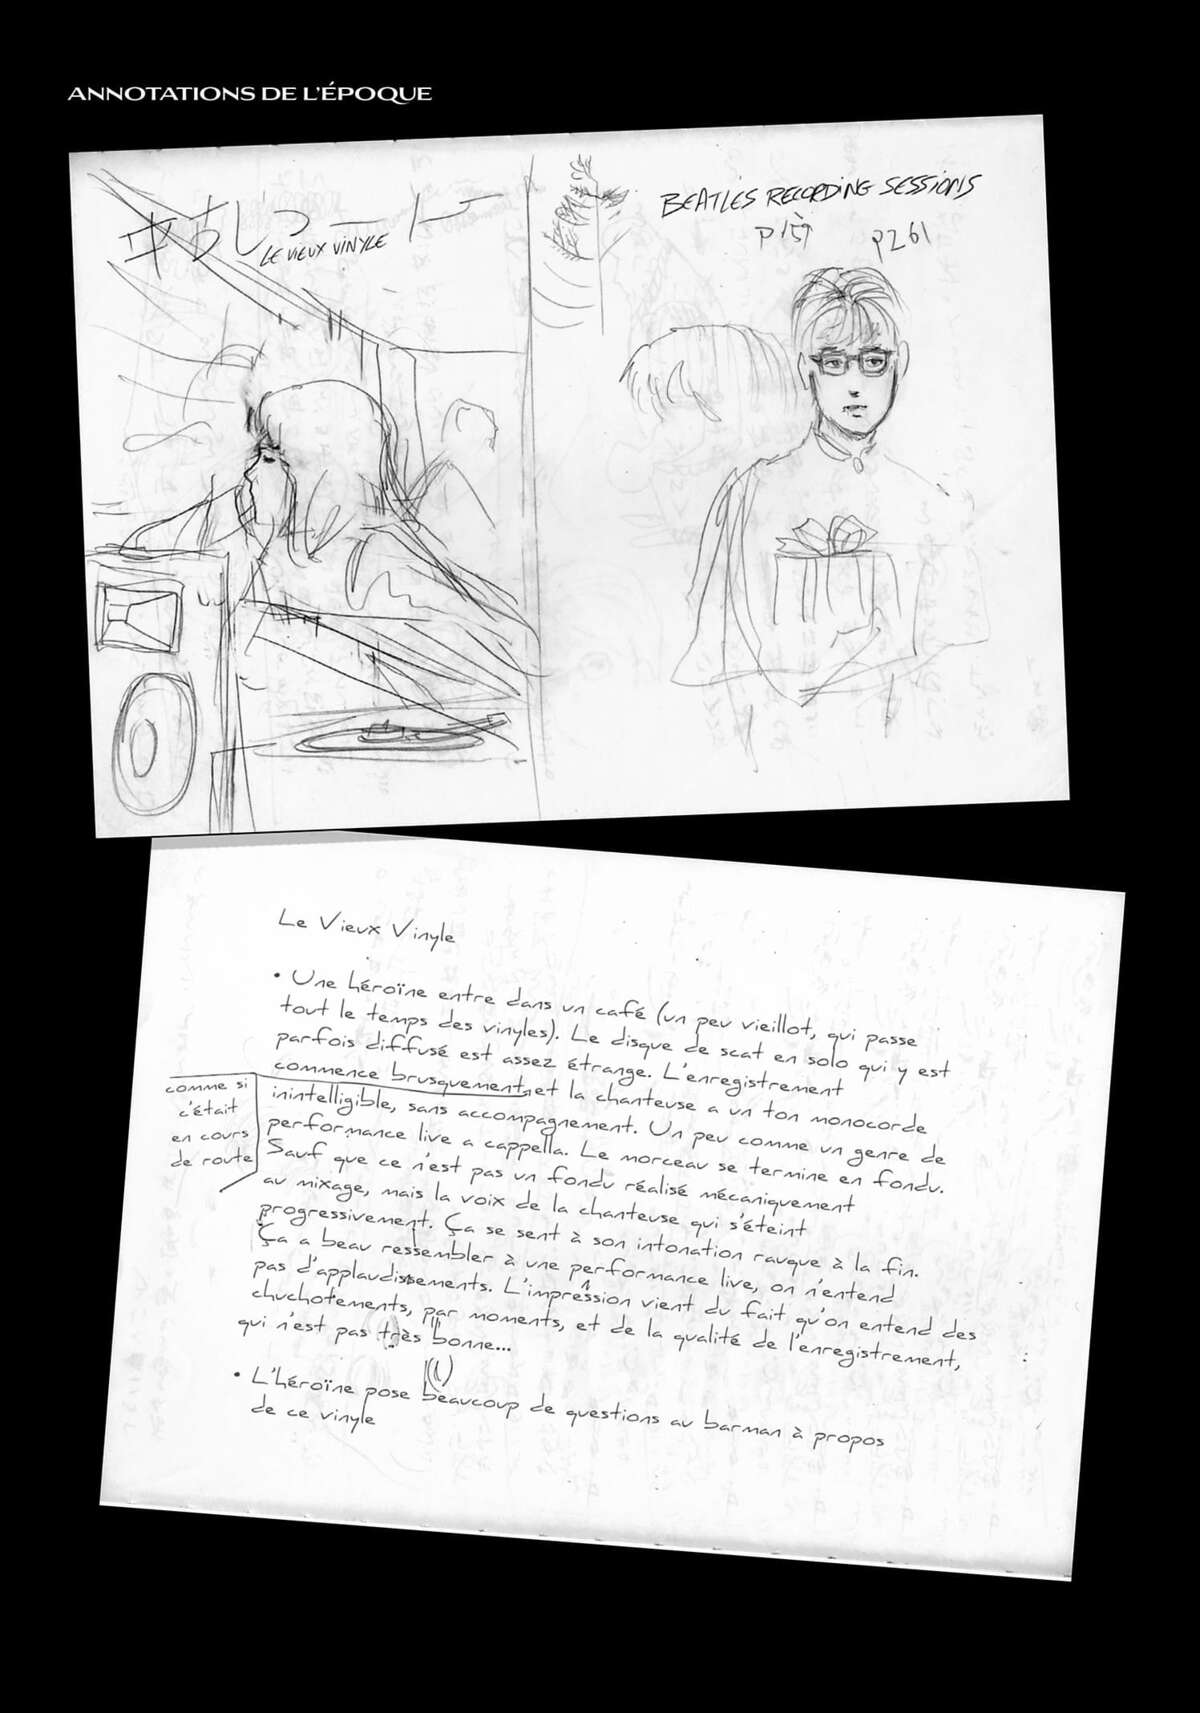 ANNOTATIONS DE L'ÉPOQUE
LE VIEUX VINYLE
BEATLES RECORDING SESSIONS
P159 P261
Le Vieux Vinyle
• Une héroïne entre dans un café (un peu vieillot, qui passe
tout le temps des vinyles). Le disque de scat en solo qui y est
parfois diffusé est assez étrange. L'enregistrement
commence brusquement, et la chanteuse a un ton monocorde
inintelligible, sans accompagnement. Un peu comme un genre de
performance live a cappella. Le morceau se termine en fondu.
Sauf que ce n'est pas un fondu réalisé mécaniquement
au mixage, mais la voix de la chanteuse qui s'éteint
progressivement. Ça se sent à son intonation rauque à la fin.
Ça a beau ressembler à une performance live, on n'entend
pas d'applaudissements. L'impression vient du fait qu'on entend des
chuchotements, par moments, et de la qualité de l'enregistrement,
qui n'est pas très bonne...
comme si
c'était
en cours
de route
• L'héroïne pose beaucoup de questions au barman à propos
de ce vinyle